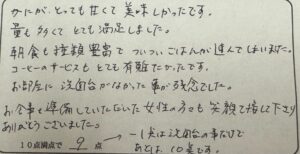 かにが、とっても甘くて美味しかったです。
量も多くてとても満足しました。
朝食も種類豊富でついついごはんが進んでしまいました。
コーヒーのサービスもとても有難たかったです。
お部屋に洗面台がなかった事が残念でした。
お食事を準備していただいた女性の方も笑顔で接して下さり
ありがとうございました。
10点満点で 9 点 → -1点は洗面台の事だけで
あとは、10点です。